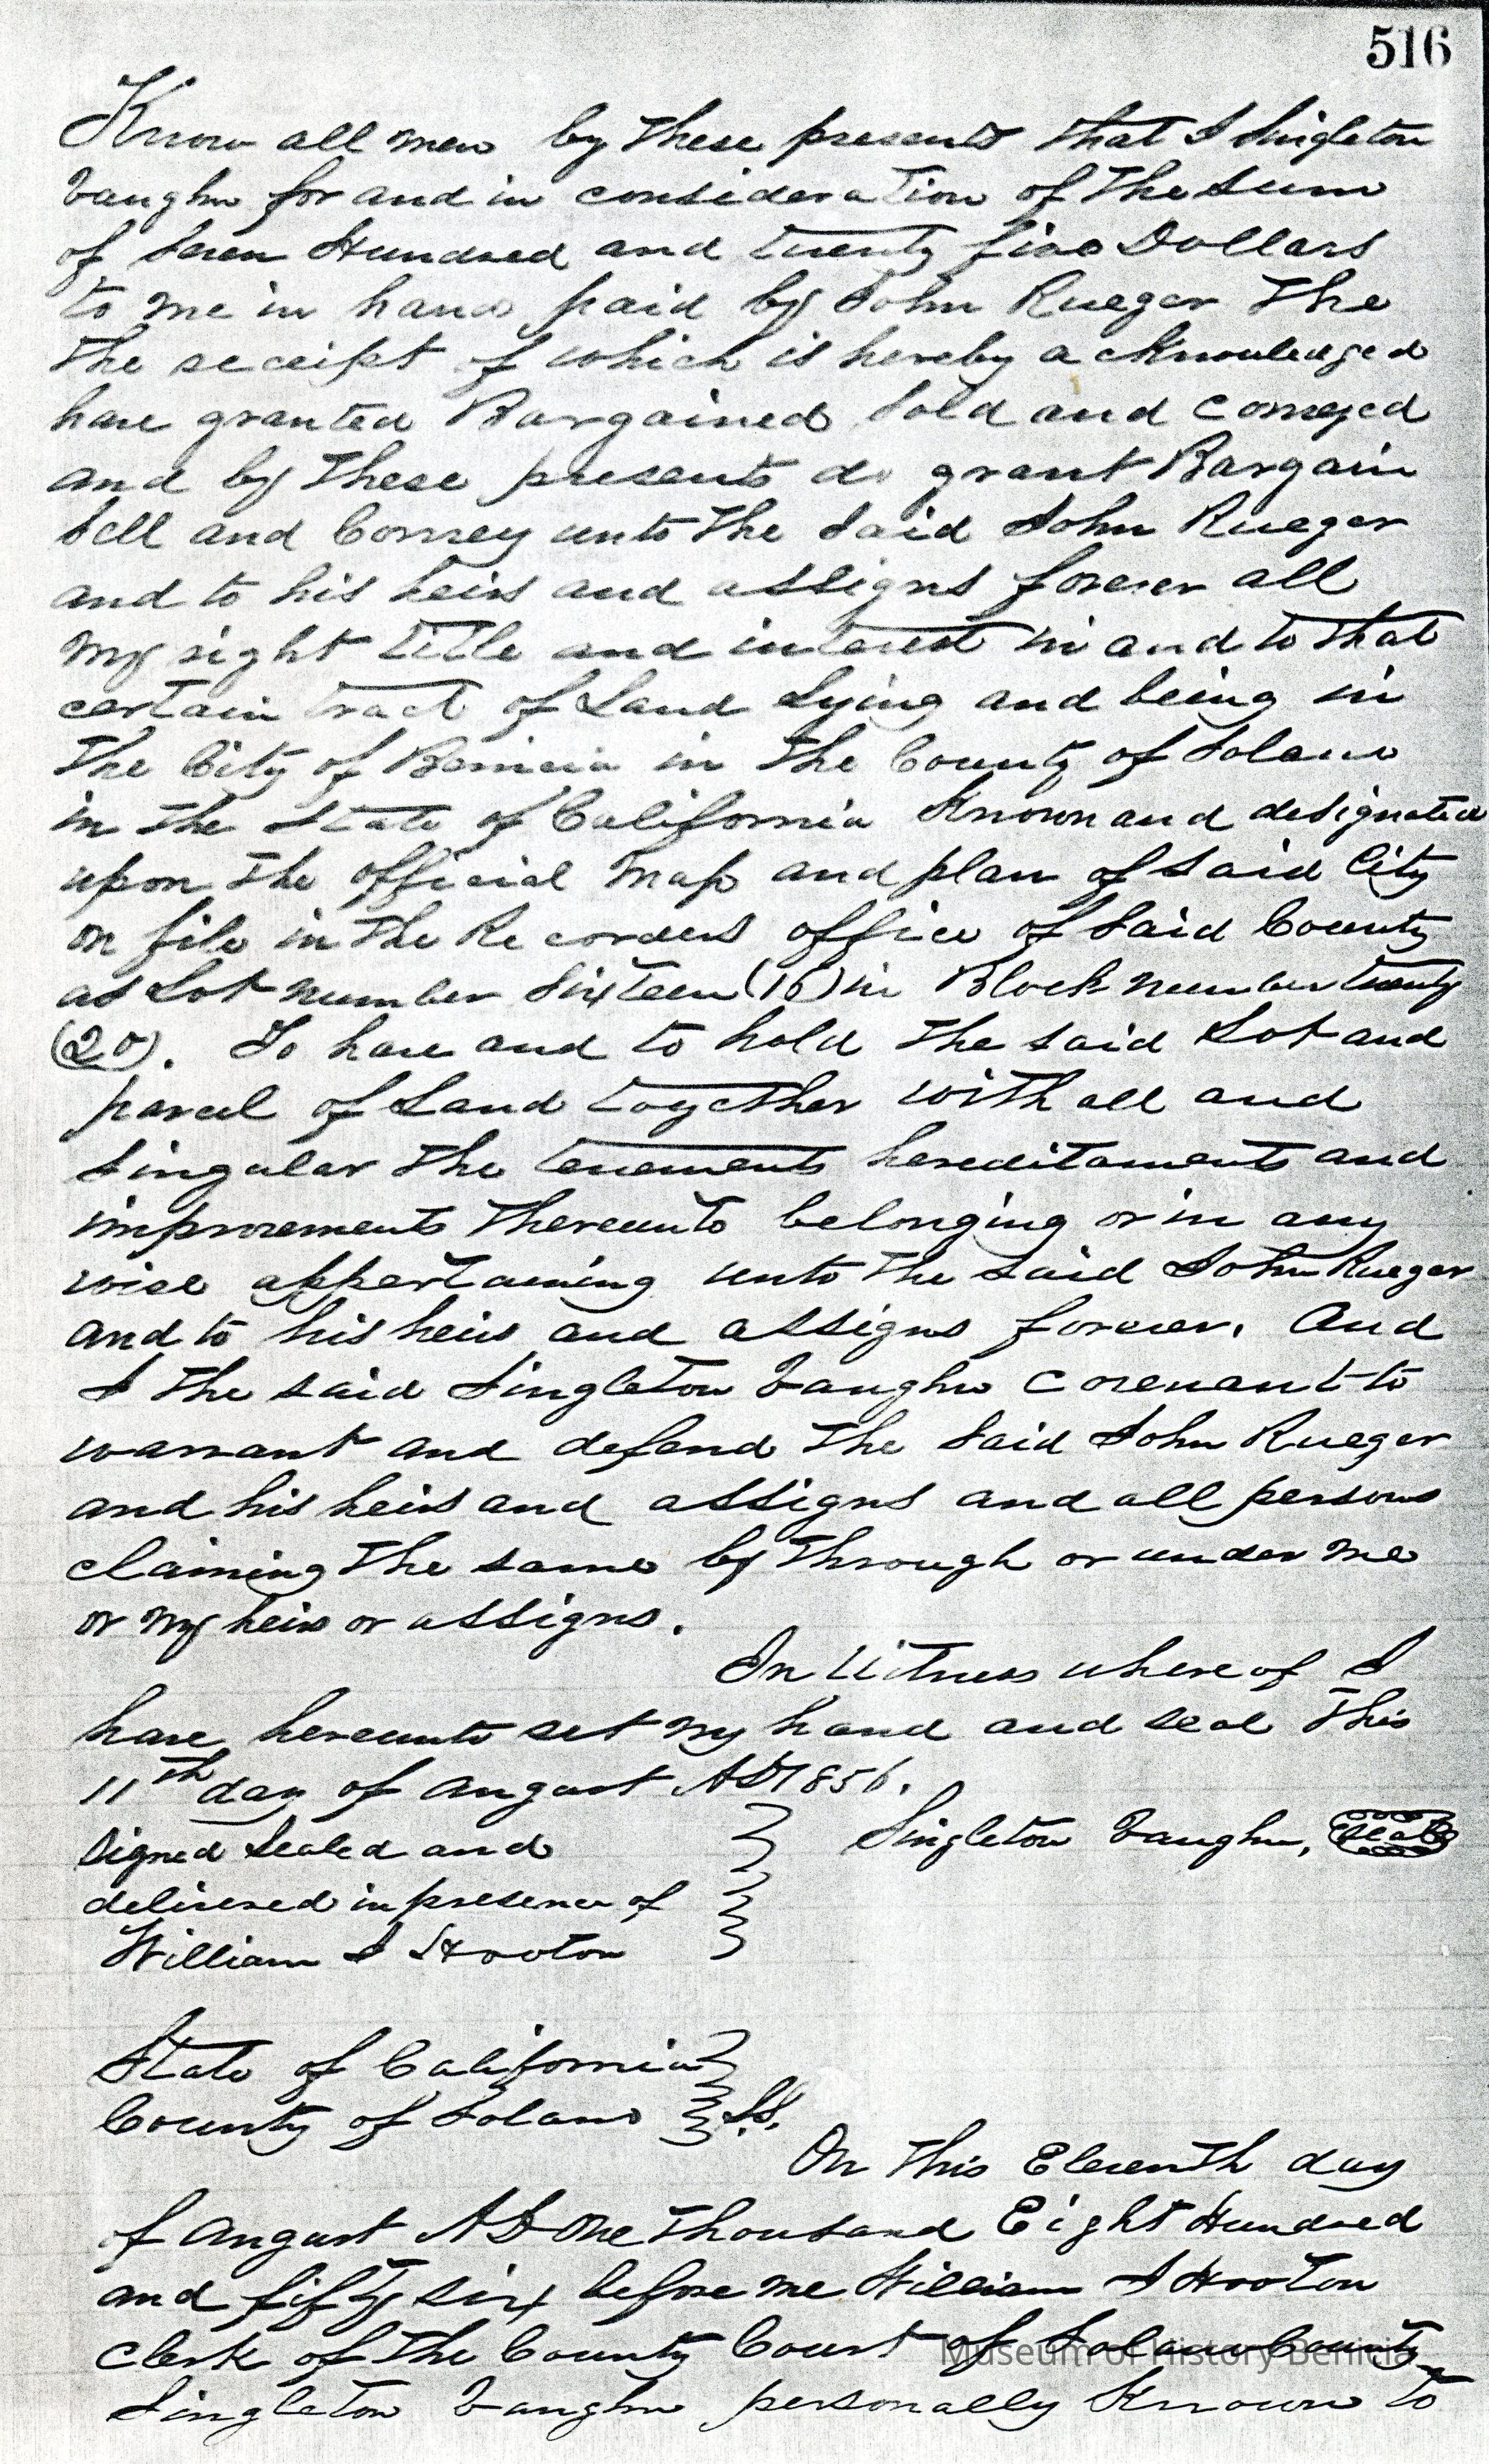 516
Know all men by these presents that I Singleton
Vaughn for and in consideration of the sum
of Seven Hundred and twenty five Dollars
to me in hand paid by John Rueger the
the receipt of which is hereby acknowledged
have granted Bargained Sold and conveyed
and by these presents do grant Bargain
Sell and Convey unto the Said John Rueger
and to his heirs and assigns forever all
my right title and interest in and to that
certain tract of Land Lying and being in
the City of Benicia in the County of Solano
in the State of California Known and designated
upon the official map and plan of said City
on file in the Recorders office of Said County
as Lot number Sixteen (16) in Block number twenty
(20). To have and to hold the said Lot and
parcel of Land together with all and
Singular the tenements hereditaments and
improvements thereunto belonging or in any
wise appertaining unto the said John Rueger
and to his heirs and assigns forever. And
I the said Singleton Vaughn covenant to
warrant and defend the Said John Rueger
and his heirs and assigns and all persons
claiming the same by through or under me
or my heirs or assigns.
In Witness whereof I
have hereunto set my hand and seal this
11th day of August AD 1856.
Signed Sealed and
Singleton Vaughn, Seal
delivered in presence of
William I Hooton
State of California
County of Solano } SS.
On this Eleventh day
of August AD One thousand Eight Hundred
and fifty six before me William I Hooton
Clerk of the County Court of Solano County
Museum of History Benicia
Singleton Vaughn personally Known to